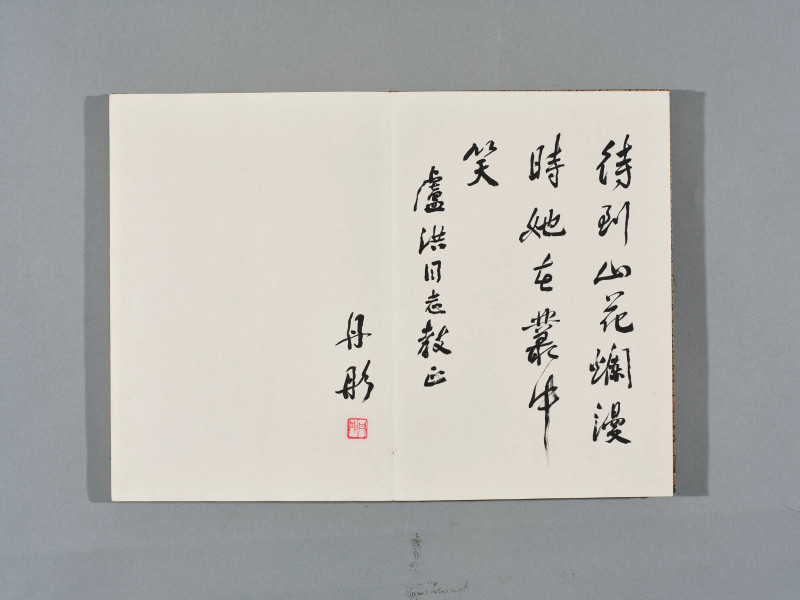 待到山花爛漫
時她在叢中
笑
盧洪同志教正
丹彤